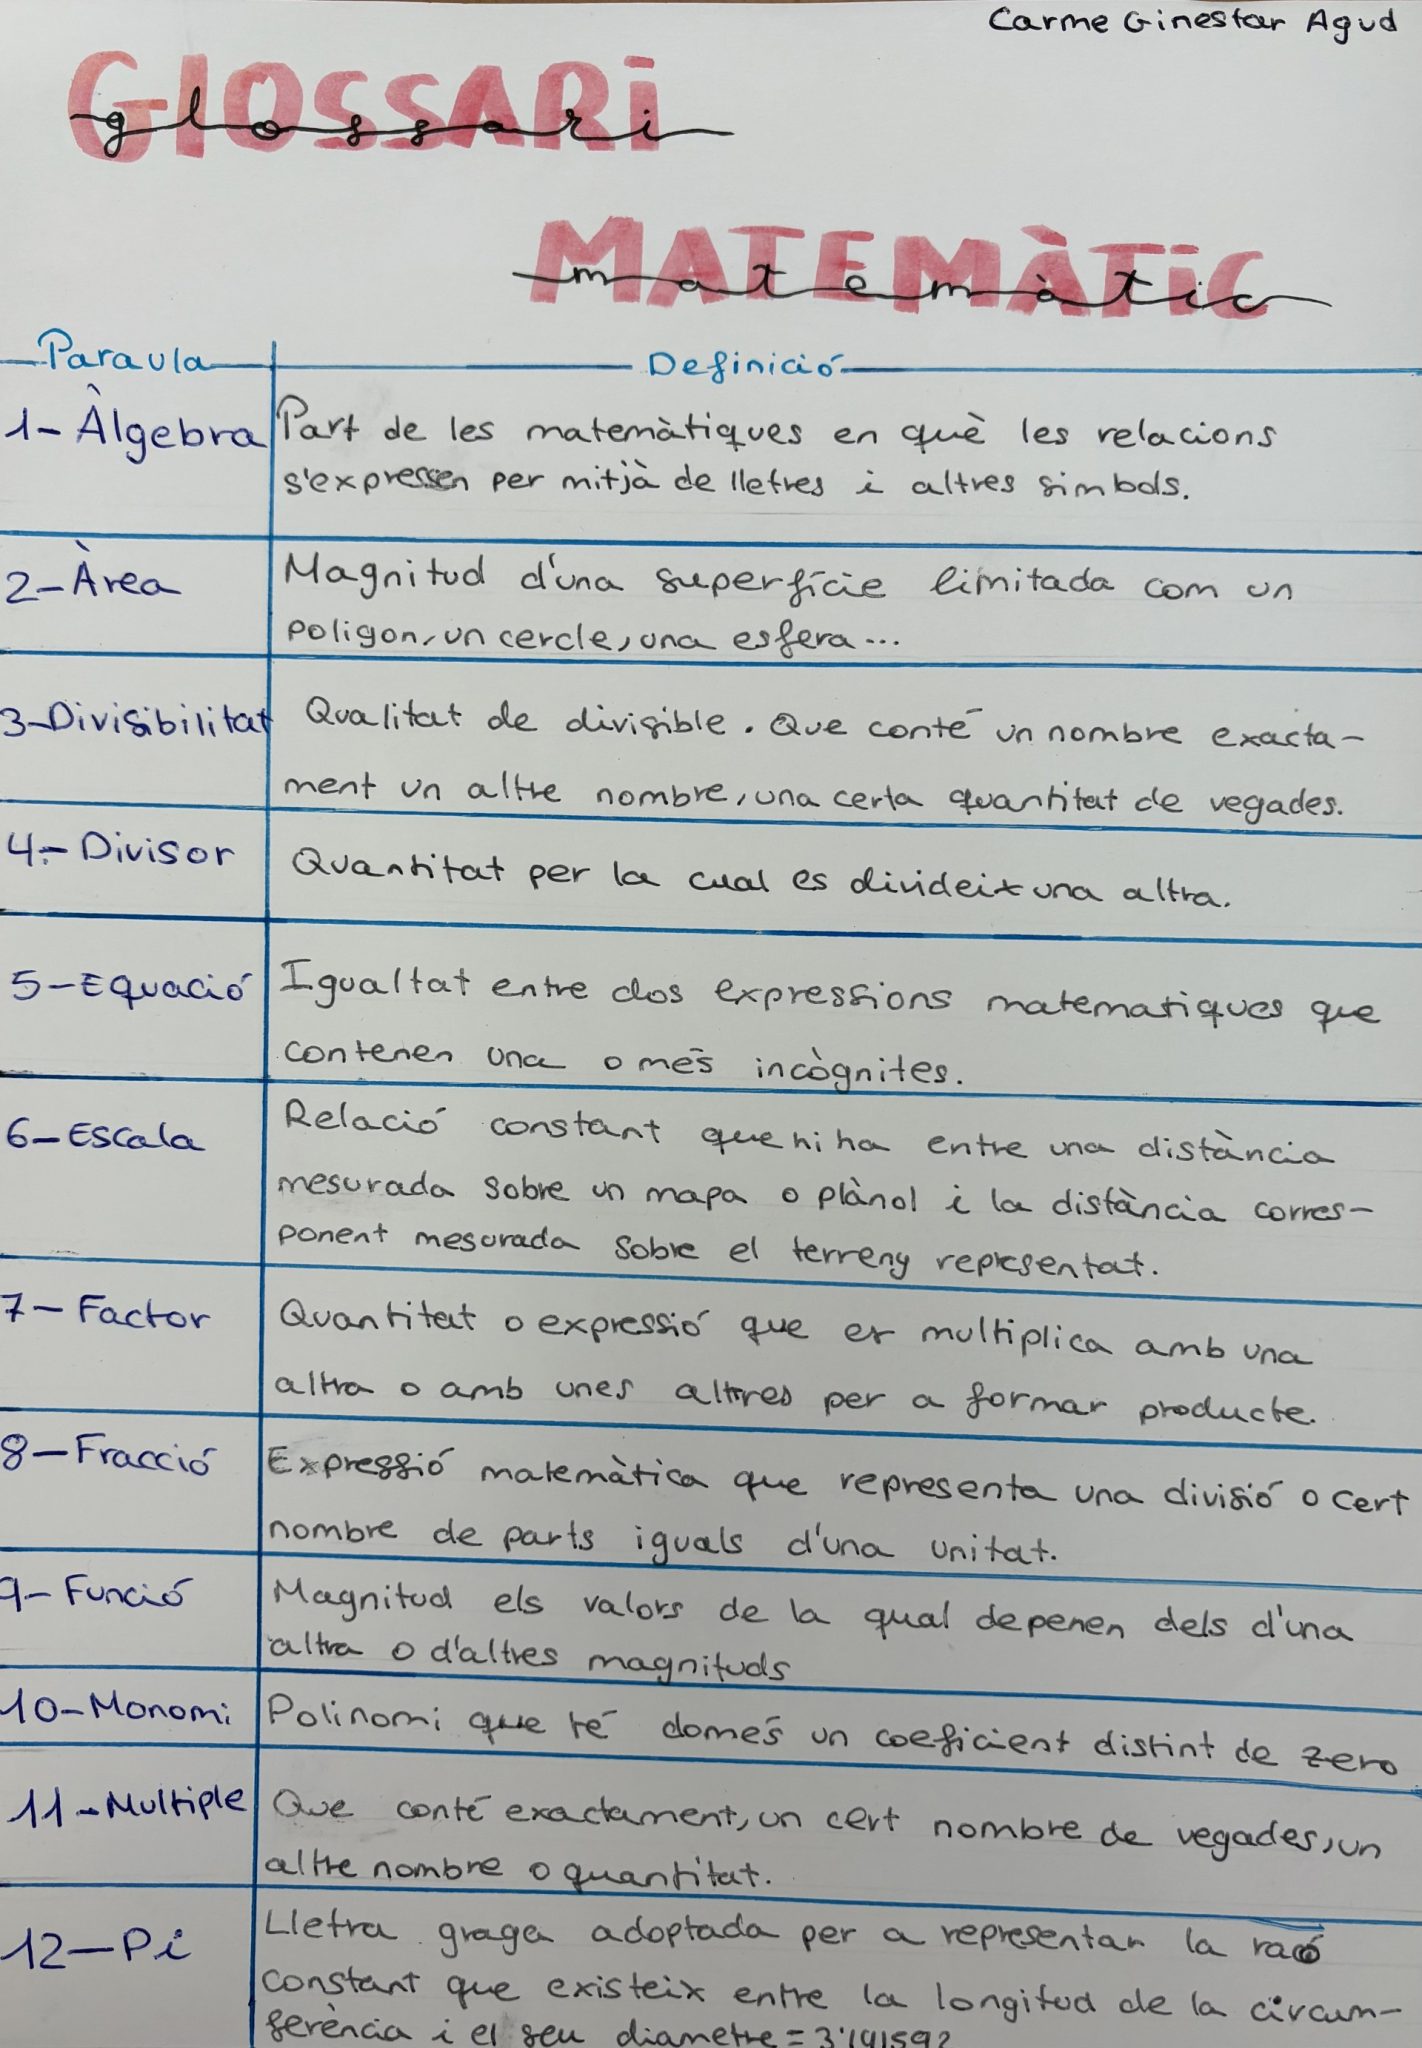 Carme Ginestar Agud
GlOSSARi
glossari
MATEMÀTiC
matemàtic
Paraula Definició
1- Àlgebra Part de les matemàtiques en què les relacions
s'expressen per mitjà de lletres i altres simbols.
2-Àrea Magnitud d'una superfície limitada com un
poligon, un cercle, una esfera...
3-Divisibilitat Qualitat de divisible. Que conté un nombre exacta-
ment un altre nombre, una certa quantitat de vegades.
4.- Divisor Quantitat per la cual es divideix una altra.
5-Equació Igualtat entre dos expressions matematiques que
contenen una o més incògnites.
6-Escala Relació constant que hi ha entre una distància
mesurada sobre un mapa o plànol i la distància corres-
ponent mesurada sobre el terreny representat.
7- Factor Quantitat o expressió que es multiplica amb una
altra o amb unes altres per a formar producte.
8-Fracció Expressió matemàtica que representa una divisió o cert
nombre de parts iguals d'una unitat.
9- Funció Magnitud els valors de la qual depenen dels d'una
altra o d'altres magnituds
10-Monomi Polinomi que té domés un coeficient distint de zero
11-Multiple Que conté exactament, un cert nombre de vegades, un
altre nombre o quantitat.
12-Pi Lletra graga adoptada per a representar la raó
constant que existeix entre la longitud de la circum-
ferència i el seu diametre =